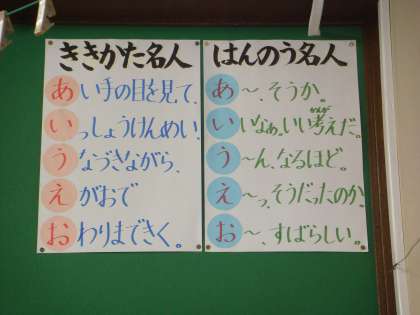 ききかた名人
あい手の目を見て、
いっしょうけんめい、
うなづきながら、
えがおで
おわりまできく。
はんのう名人
あ～、そうか。
いいなぁ。いい考えだ。
かんが
う～ん、なるほど。
え～っ、そうだったのか。
お～、すばらしい。